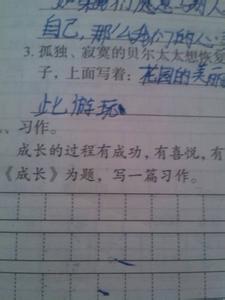 自己,那么我们的人
3.孤独、寂寞的贝尔太太想恢复
子，上面写着：花园的美丽
此游玩
、习作。
成长的过程有成功，有喜悦，有
《成长》为题，写一篇习作。